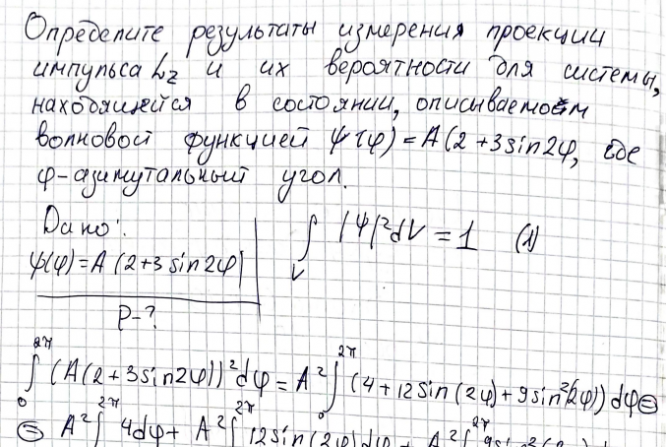 Определите результаты измерения проекции
импульса Lz и их вероятности для системы,
находящейся в состоянии, описываемом
волновой функцией ψ(φ) = A(2+3sin2φ, где
φ-азимутальный угол.
Дано: ∫V |Ψ|²dV = 1 (1)
ψ(φ)=A(2+3sin2φ)
P-?
∫₀²π (A(2+3sin2φ))²dφ = A² ∫₀²π (4+12sin(2φ)+9sin²(2φ))dφ ⊜
⊜ A² ∫²π 4dφ + A² ∫²π 12sin(2φ)dφ + A² ∫²π